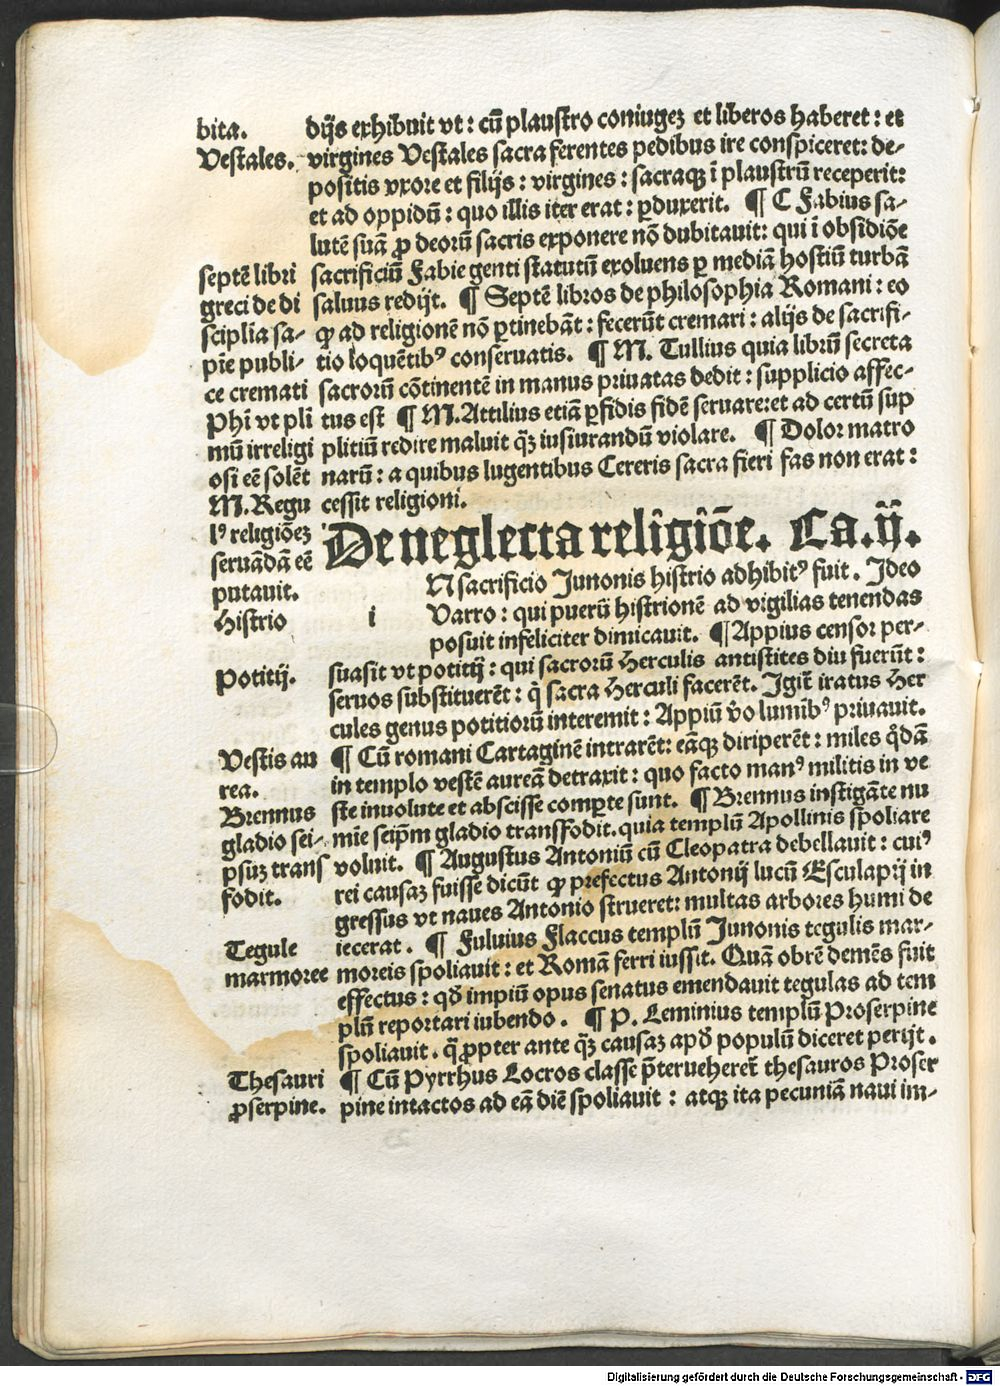 bita.
Vestales.
septē libri
greci de di
sciplīa sa-
pīe publi-
ce cremati
Phī vt pli
mū irreligi
osi eē solēt
M. Regu
lꝰ religiōeꝫ
seruādā eē
putauit.
Histrio
Potitij.
Vestis au
rea.
Brennus
gladio sei-
psuꝫ trans
fodit.
Tegule
marmoree
Thesauri
ꝓserpine.
dijs exhibuit vt : cū plaustro coniugeꝫ et liberos haberet : et
virgines Vestales sacra ferentes pedibus ire conspiceret : de-
positis vxore et filijs : virgines : sacraqꝫ ī plaustrū receperit :
et ad oppidū : quo illis iter erat : ꝑduxerit. ¶ C Fabius sa-
lutē suā ꝓ deorū sacris exponere nō dubitauit : qui ī obsidiōe
sacrificiū Fabie genti statutū exoluens ꝑ mediā hostiū turbā
saluus redijt. ¶ Septē libros de philosophia Romani : eo
ꝙ ad religionē nō ꝑtinebāt : fecerūt cremari : alijs de sacrifi-
tio loquētibꝰ conseruatis. ¶ M. Tullius quia librū secreta
sacrorū cōtinentē in manus priuatas dedit : supplicio affec-
tus est ¶ M. Attilius etiā ꝑfidis fidē seruare : et ad certū sup
plitiū redire maluit qꝫ̄ iusiurandū violare. ¶ Dolor matro
narū : a quibus lugentibus Cereris sacra fieri fas non erat :
cessit religioni.
De neglecta religiōe. Ca. ij.
i
N sacrificio Junonis histrio adhibitꝰ fuit. Ideo
Varro : qui puerū histrionē ad vigilias tenendas
posuit infeliciter dimicauit. ¶ Appius censor per-
suasit vt potitij : qui sacrorū Herculis antistites diu fuerūt :
seruos substituerēt : q̄ sacra Herculi facerēt. Igit̄ iratus Her
cules genus potitiorū interemit : Appiū v̄o lumībꝰ priuauit.
¶ Cū romani Cartaginē intrarēt : eāqꝫ diriperēt : miles qͦdā
in templo vestē aureā detraxit : quo facto manꝰ militis in ve
ste inuolute et abscisse comꝑte sunt. ¶ Brennus instigāte nu
mīe seip̄m gladio transfodit. quia templū Apollinis spoliare
voluit. ¶ Augustus Antoniū cū Cleopatra debellauit : cuiꝰ
rei causaꝫ fuisse dicūt ꝙ prefectus Antonij lucū Esculapij in
gressus vt naues Antonio strueret : multas arbores humi de
iecerat. ¶ Fuluius Flaccus templū Junonis tegulis mar-
moreis spoliauit : et Romā ferri iussit. Quā obrē demēs fuit
effectus : qđ impiū opus senatus emendauit tegulas ad tem
plū reportari iubendo. ¶ P. Leminius templū Proserpine
spoliauit. q̄ ꝓpter ante qꝫ̄ causaꝫ apđ populū diceret perijt.
¶ Cū Pyrrhus Locros classe p̄terueheret̄ thesauros Proser
pine intactos ad eā diē spoliauit : atqꝫ ita pecuniā naui im-
Digitalisierung gefördert durch die Deutsche Forschungsgemeinschaft - DFG